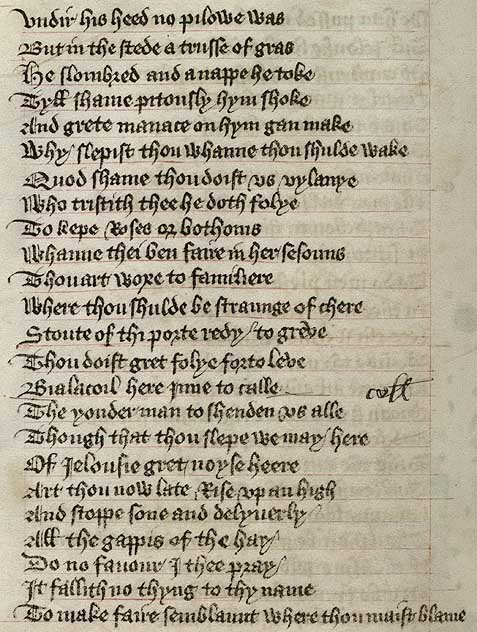 Vndir his heed no pilowe was
But in the stede a trusse of gras
He slombred and a nappe he toke
Tyll shame pitously hym shoke
And grete manace on hym gan make
Why slepist thou whanne thou shulde wake
Quod shame thou doist vs vylanye
Who tristith thee he doth folye
To kepe Roses or bothoms
Whanne thei ben faire in her sesouns
Thou art woxe to familiere
Where thou shulde be straunge of chere
Stoute of thi porte redy to greve
Thou doist gret folye forto leve
Bialacoil here inne to calle
call
The yonder man to shenden vs alle
Though that thou slepe we may here
Of Jelousie gret noyse heere
Art thou now late Rise vp an high
And stoppe sone and delyuerly
All the gappis of the hay
Do no fauour I thee pray
It fallith no thyng to thy name
To make faire semblaunt where thou maist blame